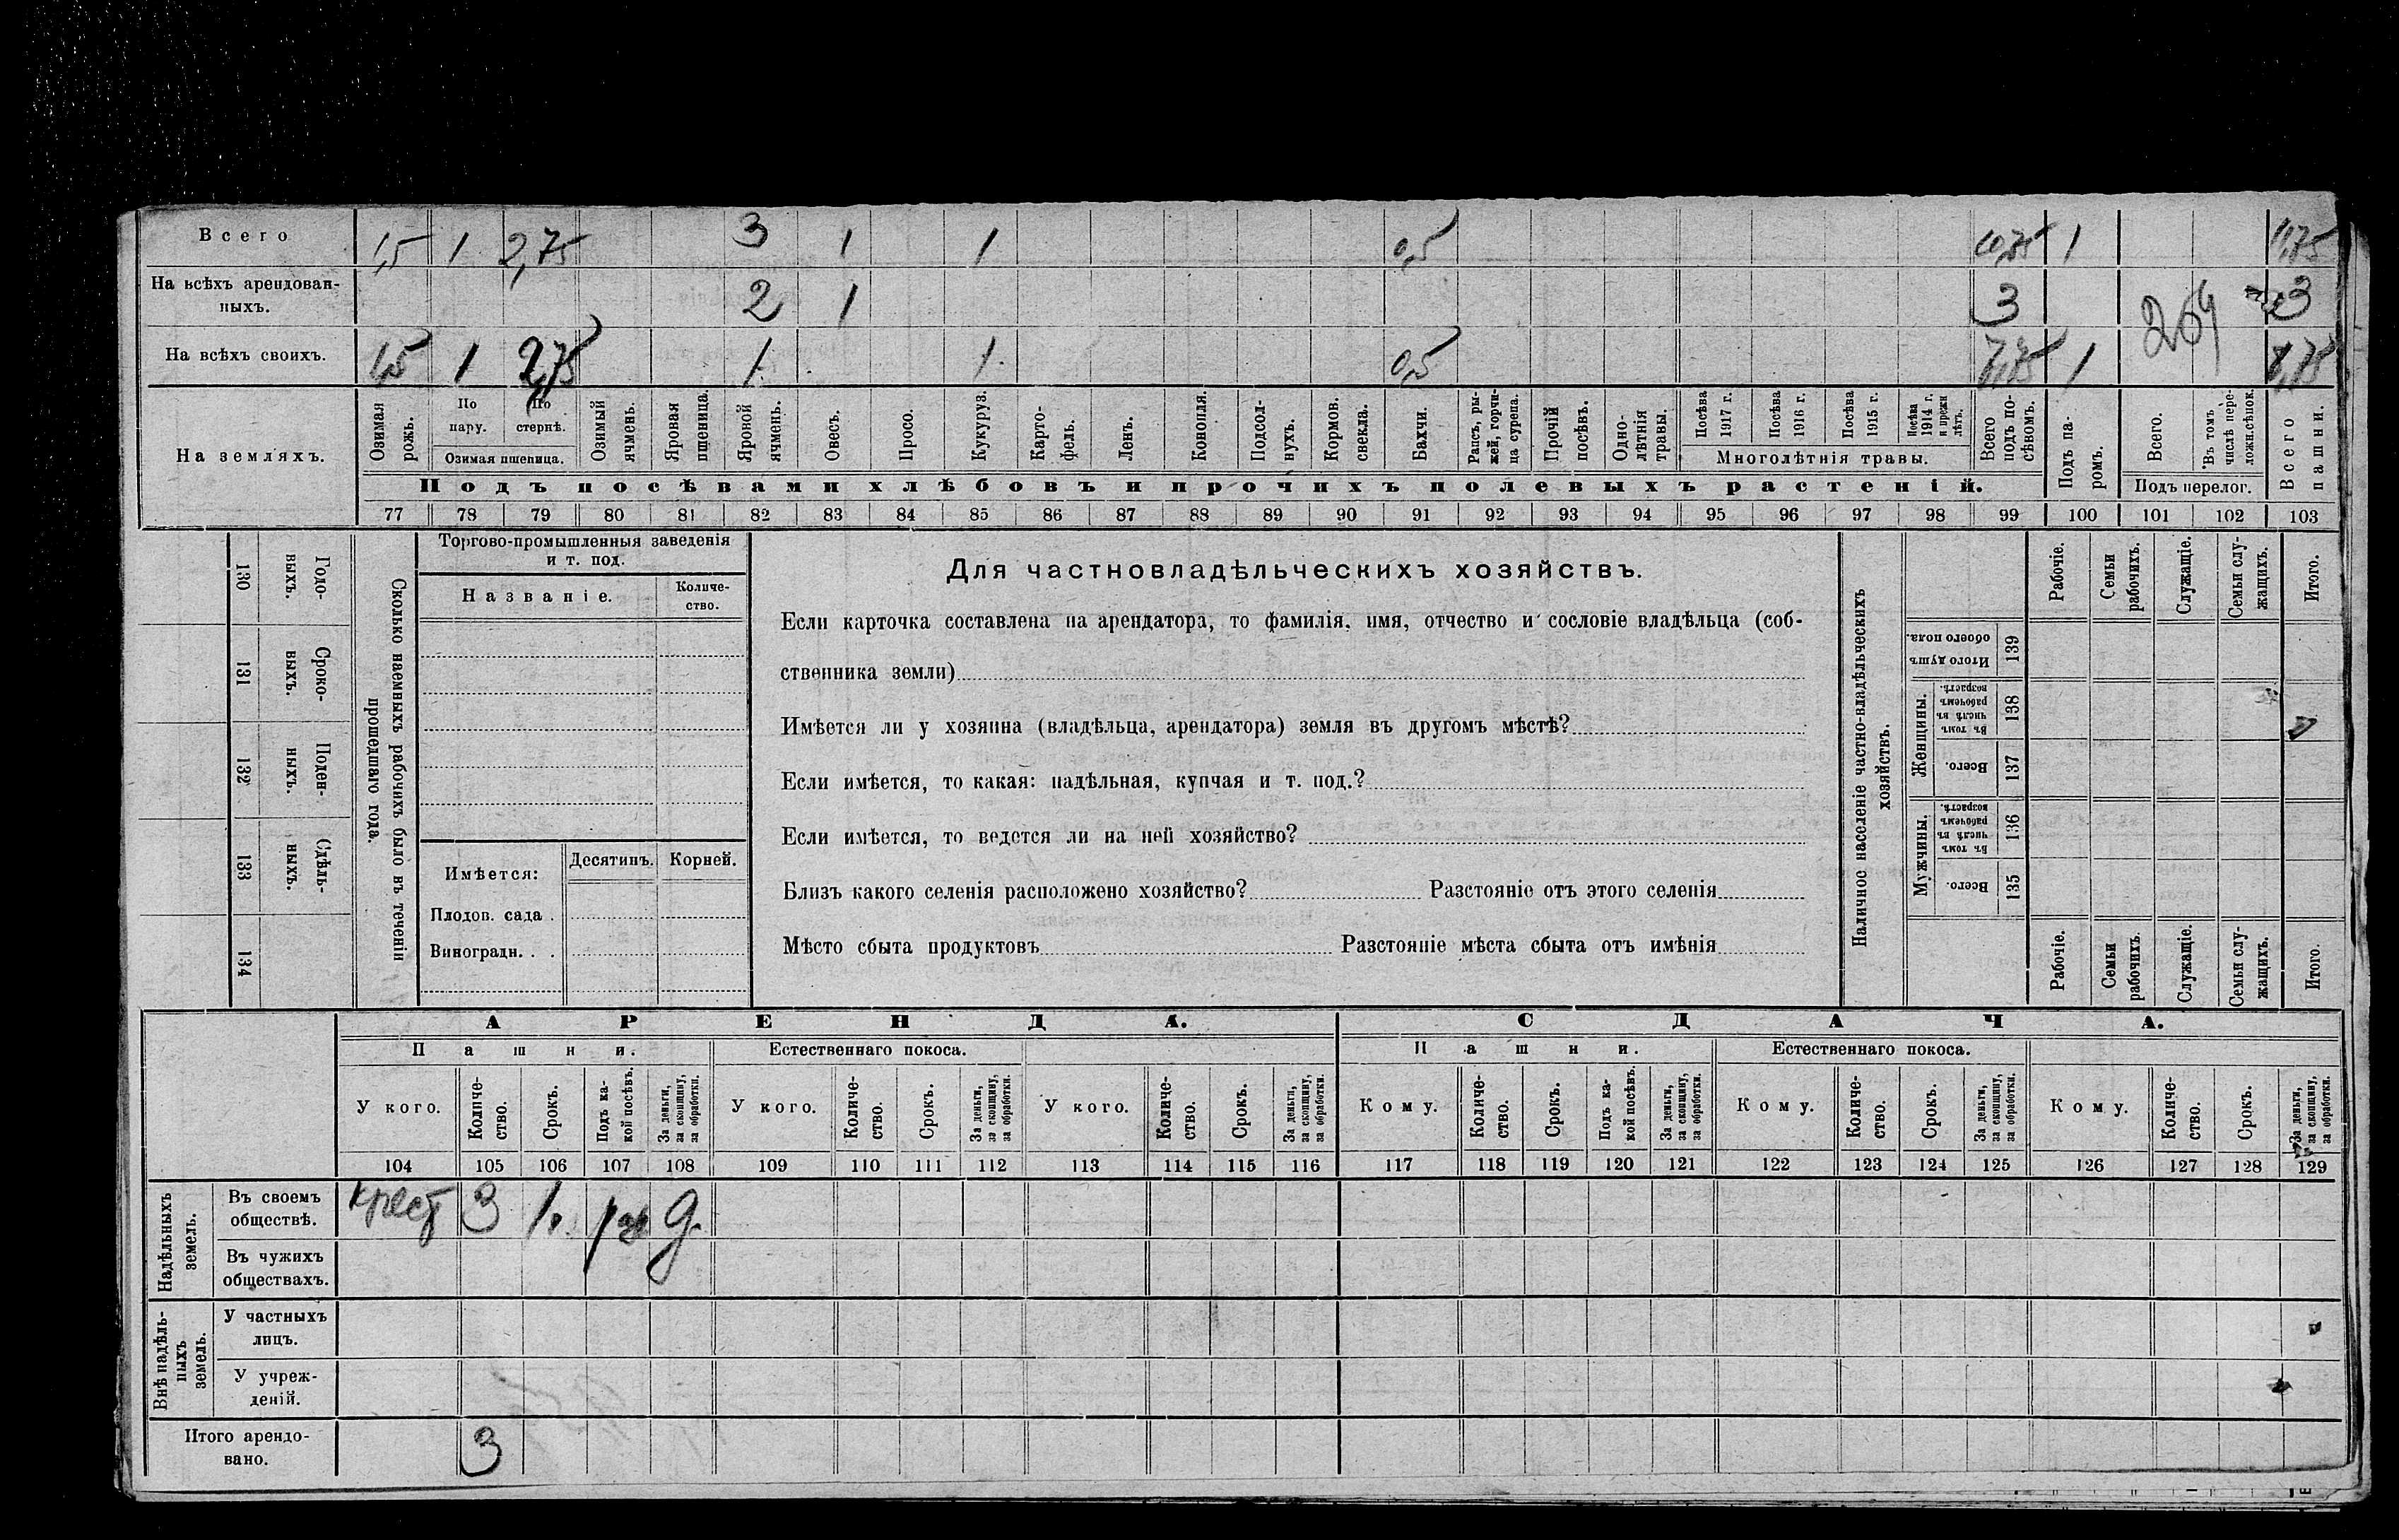 Всего 1,5 1 2,75 3 1 1 0,5 10,75 1 11,75
На всѣхъ арендован-
ныхъ. 2 1 3 3
269
На всѣхъ своихъ. 1,5 1 2,75 1 1 0,5 7,75 1 8,75
На земляхъ.
Озимая рожь.
По пару.
По стернѣ.
Озимая пшеница.
Озимый ячмень.
Яровая пшеница.
Яровой ячмень.
Овесъ.
Просо.
Кукуруз.
Карто-
фель.
Ленъ.
Конопля.
Подсол-
нухъ.
Кормов.
свекла.
Бахчи.
Рапсъ, ры-
жей, горчи-
ца сурепа.
Прочій
посѣвъ.
Одно-
лѣтнія
травы.
Посѣва
1917 г.
Посѣва
1916 г.
Посѣва
1915 г.
Посѣва
1914 г.
и прежн
лѣтъ.
Многолѣтнія травы.
Всего
подъ по-
сѣвомъ.
Подъ па-
ромъ.
Всего.
Въ томъ
числѣ пере-
ложн.сѣнок.
Подъ перелог.
Всего
пашни.
Подъ посѣвами хлѣбовъ и прочихъ полевыхъ растеній.
77 78 79 80 81 82 83 84 85 86 87 88 89 90 91 92 93 94 95 96 97 98 99 100 101 102 103
130 Годо-
выхъ.
131 Сроко-
выхъ.
132 Поден-
ныхъ.
133 Сдѣль-
ныхъ.
134
Сколько наемныхъ рабочихъ было въ теченіи
прошедшаго года.
Торгово-промышленныя заведенія
и т. под.
Названіе.
Количе-
ство.
Имѣется:
Десятинъ. Корней.
Плодов. сада .
Виноградн. . .
Для частновладѣльческихъ хозяйствъ.
Если карточка составлена на арендатора, то фамилія, имя, отчество и сословіе владѣльца (соб-
ственника земли)
Имѣется ли у хозяина (владѣльца, арендатора) земля въ другомъ мѣстѣ?
Если имѣется, то какая: надѣльная, купчая и т. под.?
Если имѣется, то ведется ли на ней хозяйство?
Близъ какого селенія расположено хозяйство? Разстояніе отъ этого селенія
Мѣсто сбыта продуктовъ Разстояніе мѣста сбыта отъ имѣнія
Наличное населеніе частно-владѣльческихъ
хозяйствъ.
Рабочіе.
Семьи
рабочихъ.
Служащіе.
Семьи слу-
жащихъ.
Итого.
Итого душъ
обоего пола.
139
Женщины.
Въ томъ
числѣ въ
рабочемъ
возрастѣ.
138
Всего.
137
Мужчины.
Въ томъ
числѣ въ
рабочемъ
возрастѣ.
136
Всего.
135
Рабочіе.
Семьи
рабочихъ.
Служащіе.
Семьи слу-
жащихъ.
Итого.
АРЕНДА. СДАЧА.
Пашни. Естественнаго покоса. Пашни. Естественнаго покоса.
У кого.
Количе-
ство.
Срокъ.
Подъ ка-
кой посѣвъ.
За деньги,
за скопщину,
за обработки.
У кого.
Количе-
ство.
Срокъ.
За деньги,
за скопщину,
за обработки.
У кого.
Количе-
ство.
Срокъ.
За деньги,
за скопщину,
за обработки.
Кому.
Количе-
ство.
Срокъ.
Подъ ка-
кой посѣвъ.
За деньги,
за скопщину,
за обработки.
Кому.
Количе-
ство.
Срокъ.
За деньги,
за скопщину,
за обработки.
Кому.
Количе-
ство.
Срокъ.
За деньги,
за скопщину,
за обработки.
104 105 106 107 108 109 110 111 112 113 114 115 116 117 118 119 120 121 122 123 124 125 126 127 128 129
Надѣльныхъ
земель.
Въ своемъ
обществѣ. крест 3 д.
Въ чужихъ
обществахъ.
Внѣ надѣль-
ныхъ
земель.
У частныхъ
лицъ.
У учреж-
деній.
Итого арендо-
вано. 3